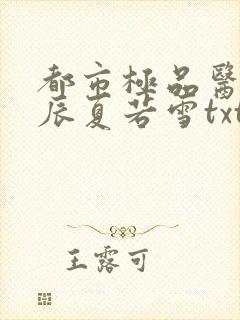 都市極品醫
辰夏若雪txt
王露可